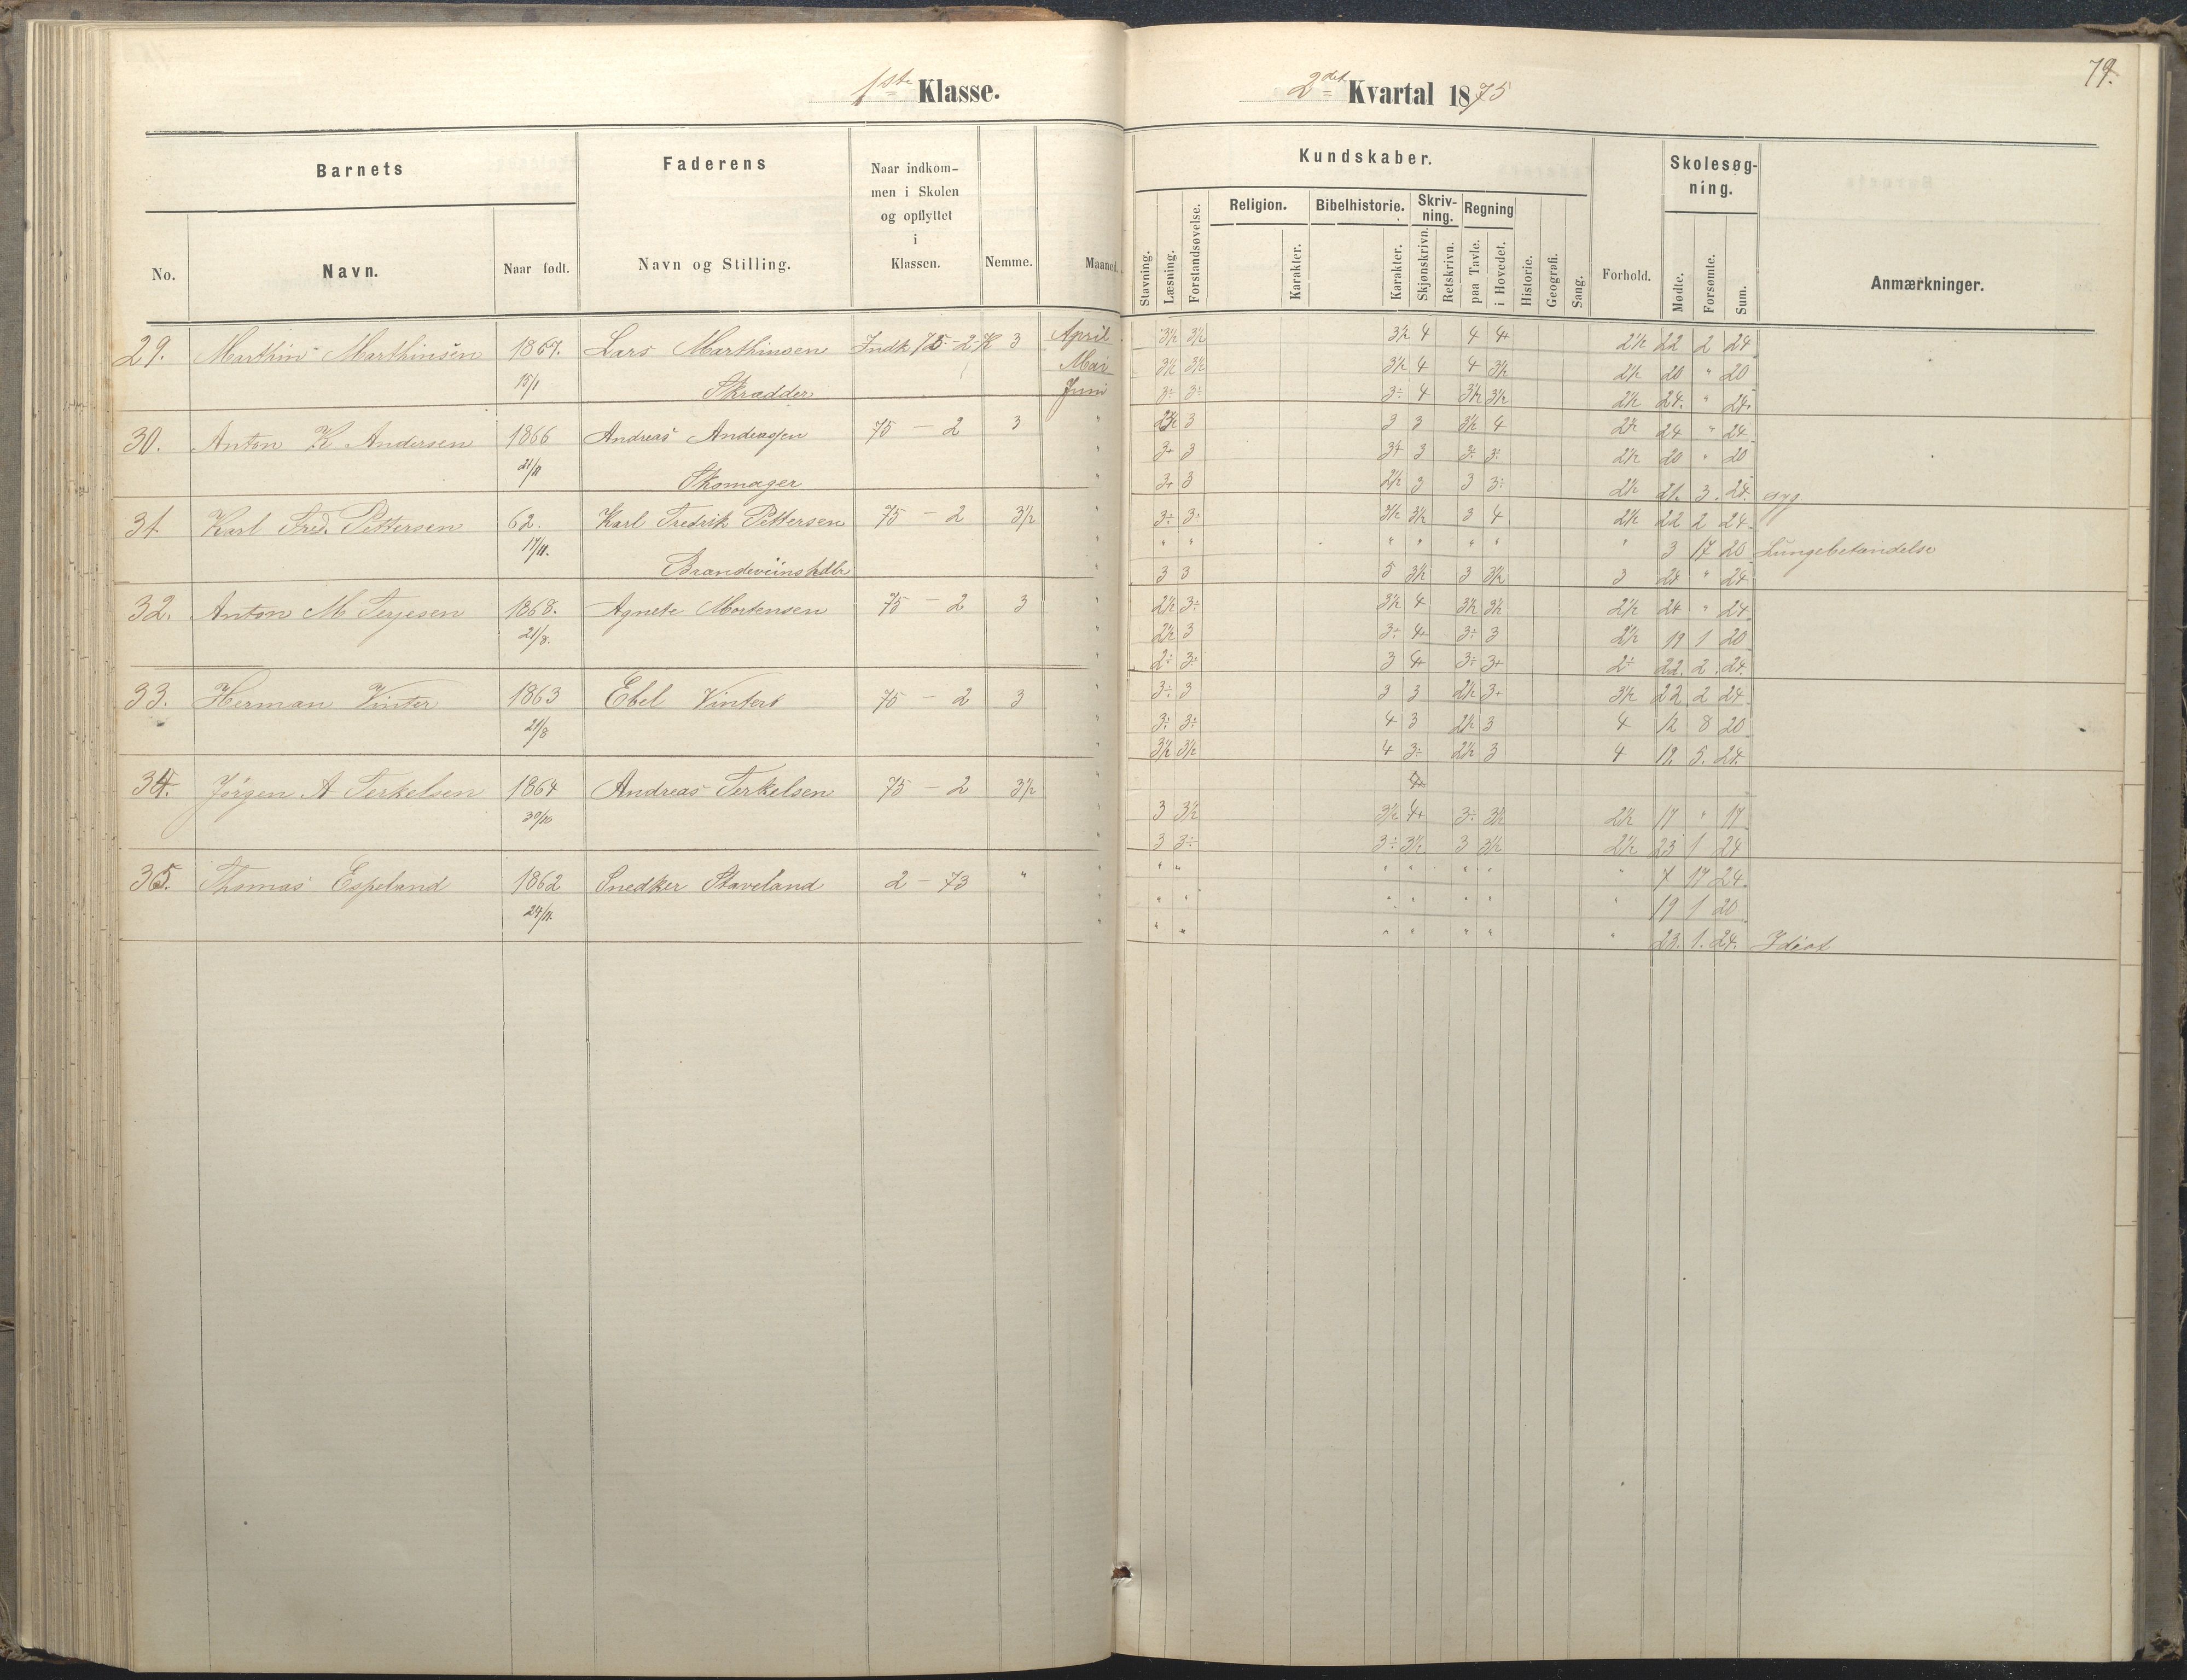 1ste Klasse.
2det Kvartal 1875
79.
Barnets
Faderens
Naar indkom-
men i Skolen
og opflyttet
i
Klassen.
Nemme.
Maaned.
No.
Navn.
Naar født.
Navn og Stilling.
Kundskaber.
Skolesøg-
ning.
Stavning.
Læsning.
Forstandsøvelse.
Religion.
Karakter.
Bibelhistorie.
Karakter.
Skriv-
ning.
Skjønskrivn.
Retskrivn.
Regning
paa Tavle.
i Hovedet.
Historie.
Geografi.
Sang.
Forhold.
Mødte.
Forsømte.
Sum.
Anmærkninger.
29. Marthin Marthinsen 1867. Lars Marthinsen Indk 75 - 2 K 3 April 3½ 3½ 3½ 4 4 4+ 2½ 22 2 24
Mai 3½ 3½ 3½ 4 4 3½ 2½ 20 " 20
15/1 Skrædder Juni 3÷ 3÷ 3÷ 4 3½ 3½ 2½ 24. " 24.
30. Anton K Andersen 1866 Andreas Andreassen 75 - 2 3 " 2½ 3 3 3 3½ 4 2½ 24 " 24
" 3+ 3 3+ 3 3÷ 3÷ 2½ 20 " 20
21/11 Skomager " 3+ 3 2½ 3 3 3÷ 2½ 21. 3. 24. syg
31. Karl Fred. Pettersen 62. Karl Fredrik Pettersen 75 - 2 3½ " 3÷ 3÷ 3½ 3½ 3 4 2½ 22 2 24.
17/11. " " " " " " " " 3 17 20 Lungebetændelse
Brændeviinshdlr " 3 3 5 3½ 3 3½ 3 24 " 24
32. Anton M Terjesen 1868. Agnete Mortensen 75 - 2 3 " 2½ 3÷ 3½ 4 3½ 3½ 2½ 24 " 24
21/8. " 2½ 3 3÷ 4+ 3÷ 3 2½ 19 1 20
" 2÷ 3÷ 3 4+ 3÷ 3+ 2÷ 22. 2. 24.
33. Herman Vinter 1863 Ebel Vinters 75 - 2 3 " 3÷ 3 3 3 2½ 3+ 3½ 22 2 24
21/8 " 3÷ 3÷ 4 3 2½ 3 4 12 8 20
" 3½ 3½ 4 3÷ 2½ 3 4 19. 5. 24.
34. Jørgen A Terkelsen 1864 Andreas Terkelsen 75 - 2 3½ "
30/10 " 3 3½ 3½ 4+ 3÷ 3½ 2½ 17 " 17
" 3 3÷ 3÷ 3½ 3 3½ 2½ 23 1 24
35. Thomas Espeland 1862 Snedker Staveland 2 - 73 " " " " " " " " " 7 17 24.
24/11. " " " " " " " " 19 1 20
" " " " " " " " 23. 1. 24. Idiot